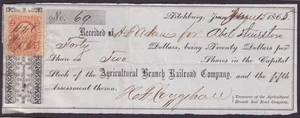 No. 69
Fitchburg, June 15 1865.
Received of A P Adams for Abel Thurston
Forty Dollars, being Twenty Dollars per
Share on Two Shares in the Capital
Stock of the Agricultural Branch Railroad Company, and the fifth
Assessment thereon.
Treasurer of the Agricultural
Branch Rail Road Company.